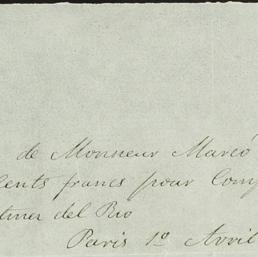 de Monsieur Marcó
Cents francs pour Comp
tines del Rio
Paris 1º Avril